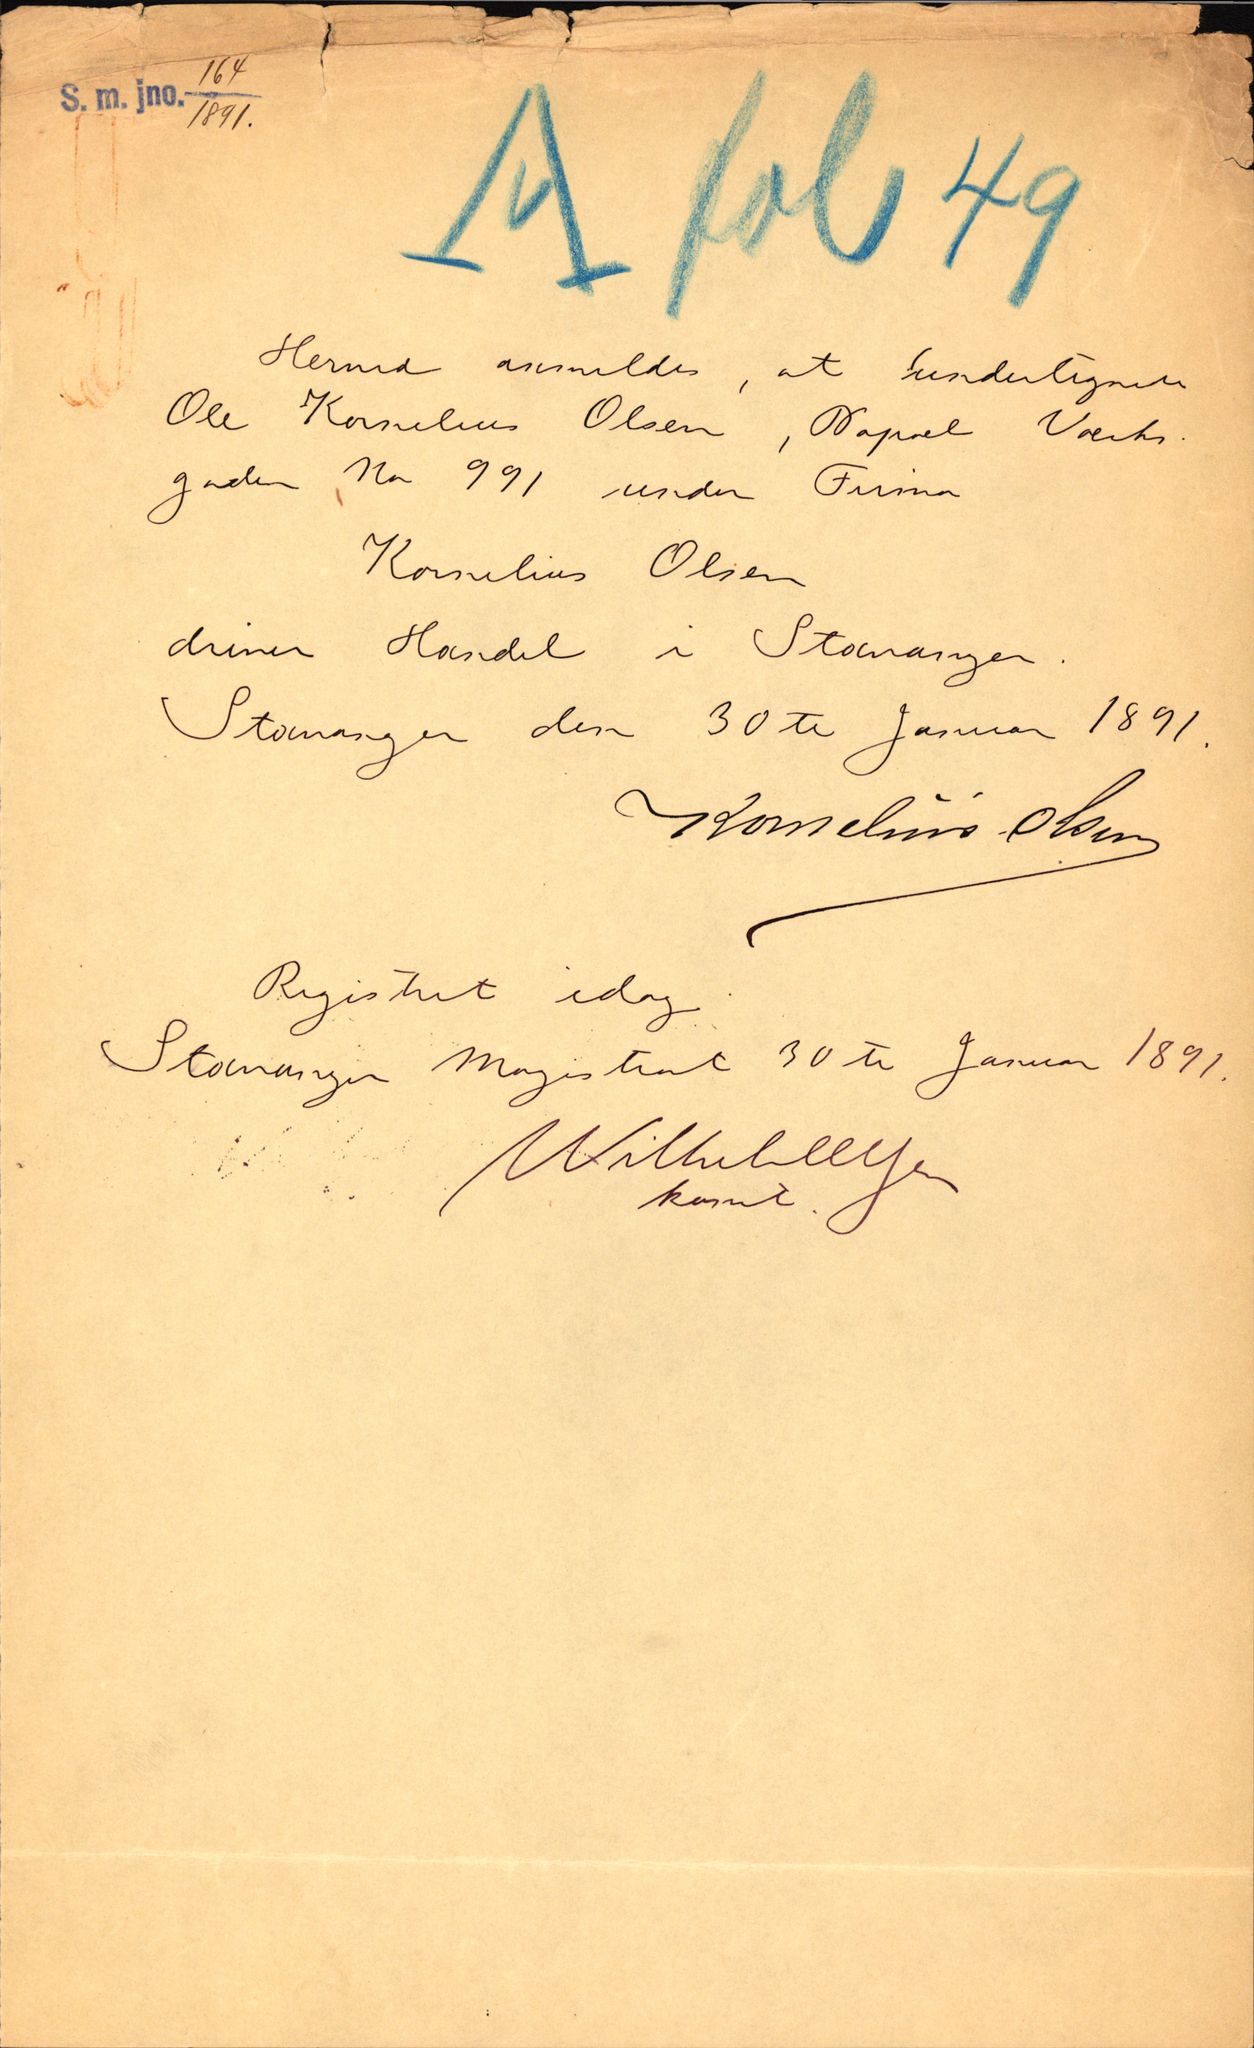 S. m. jno. 164/1891.
A fol 49
Hermed anmeldes, at undertegnede
Ole Kornelius Olsen, Værks-
gaden No 991 under Firma
Kornelius Olsen
driver Handel i Stavanger.
Stavanger den 30te Januar 1891.
Kornelius Olsen
Registret idag.
Stavanger Magistrat 30te Januar 1891.
konst.